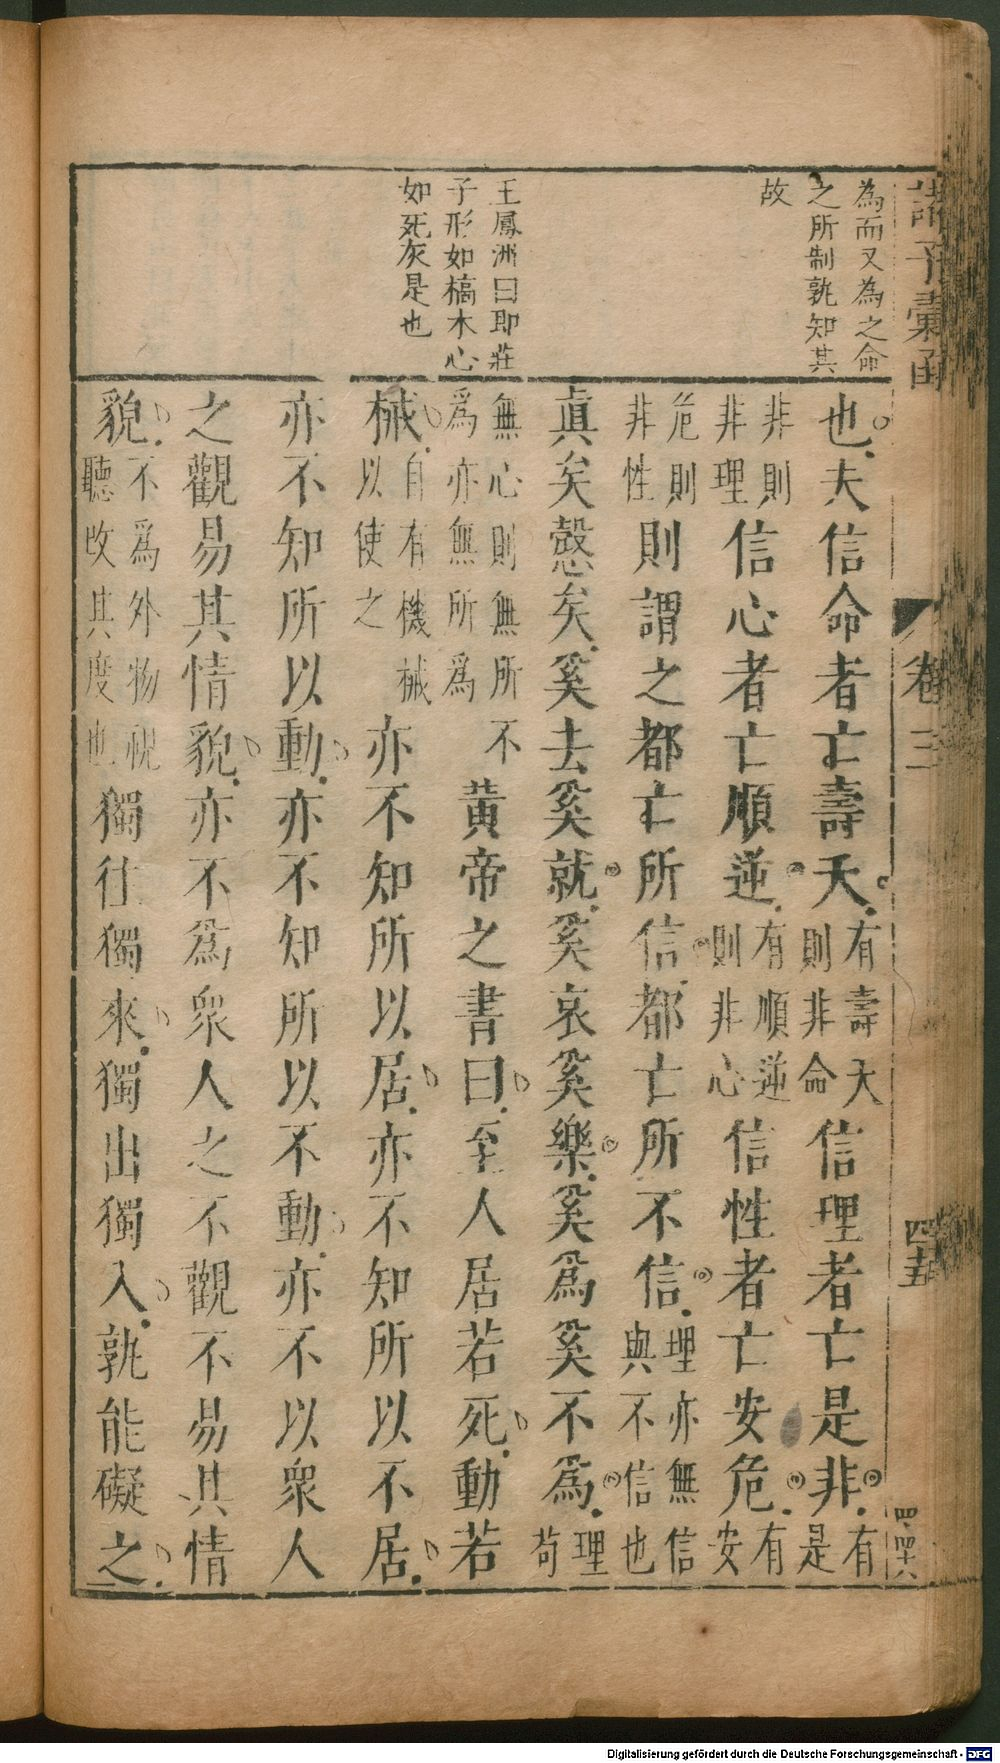 諸子彙函
卷三
四十五
為而又為之命
之所制孰知其
故
王鳳洲曰即莊
子形如槁木心
如死灰是也
也夫信命者亡壽夭有壽夭則非命信理者亡是非有是
非則非理信心者亡順逆有順逆則非心信性者亡安危有安
危則非性則謂之都亡所信都亡所不信理亦無信與不信也
真矣慤矣奚去奚就奚哀奚樂奚爲奚不爲理苟
無心則無所不爲亦無所爲黃帝之書曰至人居若死動若
械自有機械以使之亦不知所以居亦不知所以不居
亦不知所以動亦不知所以不動亦不以衆人
之觀易其情貌亦不爲衆人之不觀不易其情
貌不爲外物視聽改其度也獨往獨來獨出獨入孰能礙之
Digitalisierung gefördert durch die Deutsche Forschungsgemeinschaft - DFG